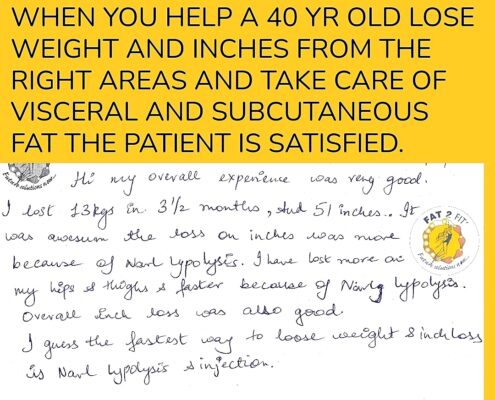 WHEN YOU HELP A 40 YR OLD LOSE
WEIGHT AND INCHES FROM THE
RIGHT AREAS AND TAKE CARE OF
VISCERAL AND SUBCUTANEOUS
FAT THE PATIENT IS SATISFIED.
Hi my overall experience was very good.
I lost 13kgs in 3 1/2 months, and 51 inches.. It
was awesum the loss on inches was more
because of Narl lypolysis. I have lost more on
my hips & thighs & faster because of Narl lypolysis.
Overall inch loss was also good.
I guess the fastest way to loose weight & inch loss
is Narl lypolysis & injection.
FAT 2 FIT